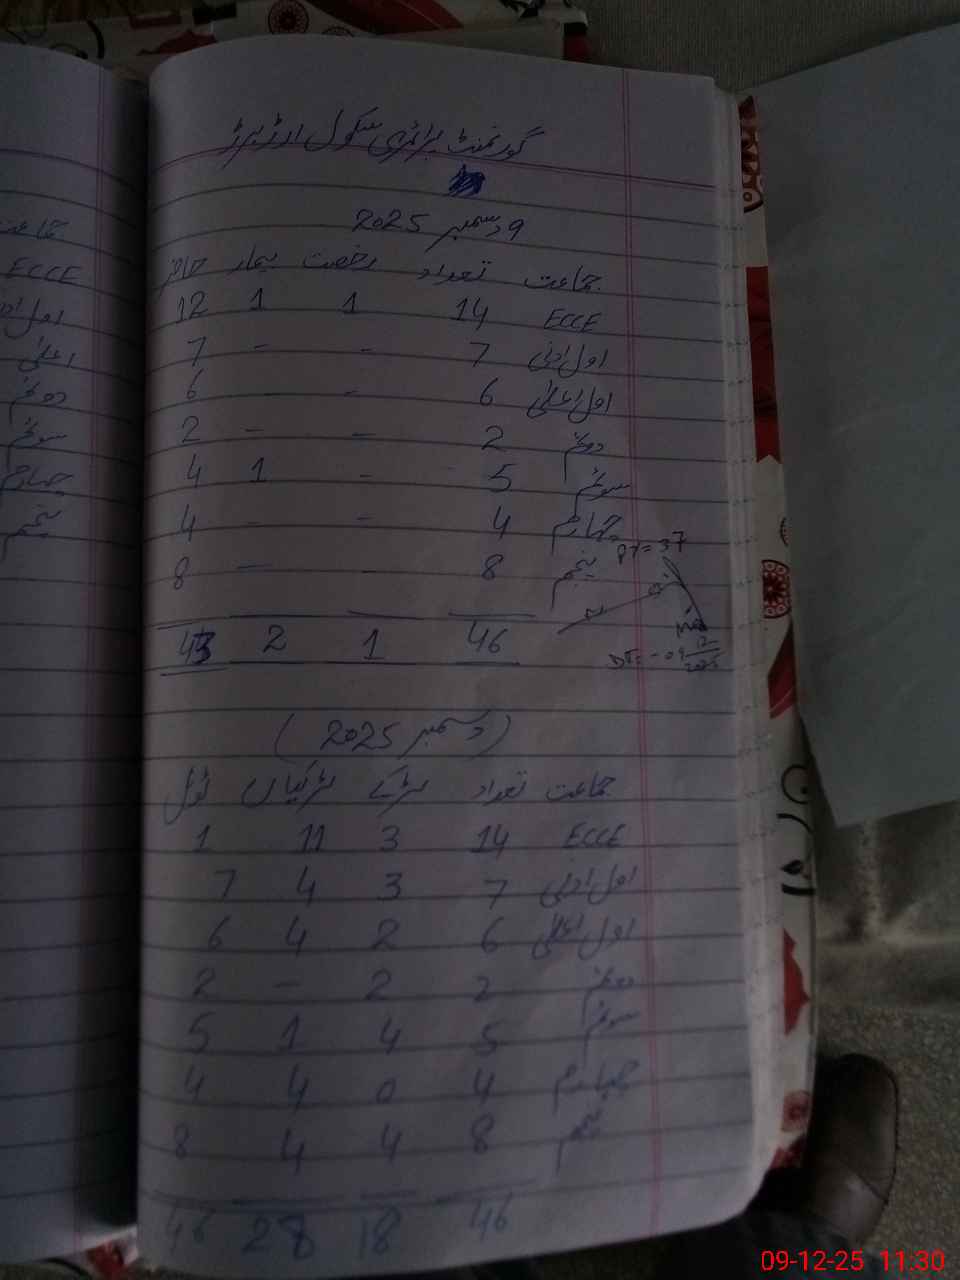 گورنمنٹ پرائمری سکول
9 دسمبر 2025
جماعت تعداد رخصت بیمار حاضر
ECCE 14 1 1 12
اول ادنیٰ 7 - - 7
اول اعلیٰ 6 - - 6
دوئم 2 - - 2
سوئم 5 - 1 4
چہارم 4 - - 4
پنجم 8 - - 8
46 1 2 43
PT = 37
DT: - 09
12
2025
(دسمبر 2025)
جماعت تعداد لڑکے لڑکیاں ٹوٹل
ECCE 14 3 11 1
اول ادنیٰ 7 3 4 7
اول اعلیٰ 6 2 4 6
دوئم 2 2 - 2
سوئم 5 4 1 5
چہارم 4 0 4 4
پنجم 8 4 4 8
46 18 28 46
جماعت
ECCE
اول ادنیٰ
اعلیٰ
دوئم
سوئم
چہارم
پنجم
09-12-25 11:30